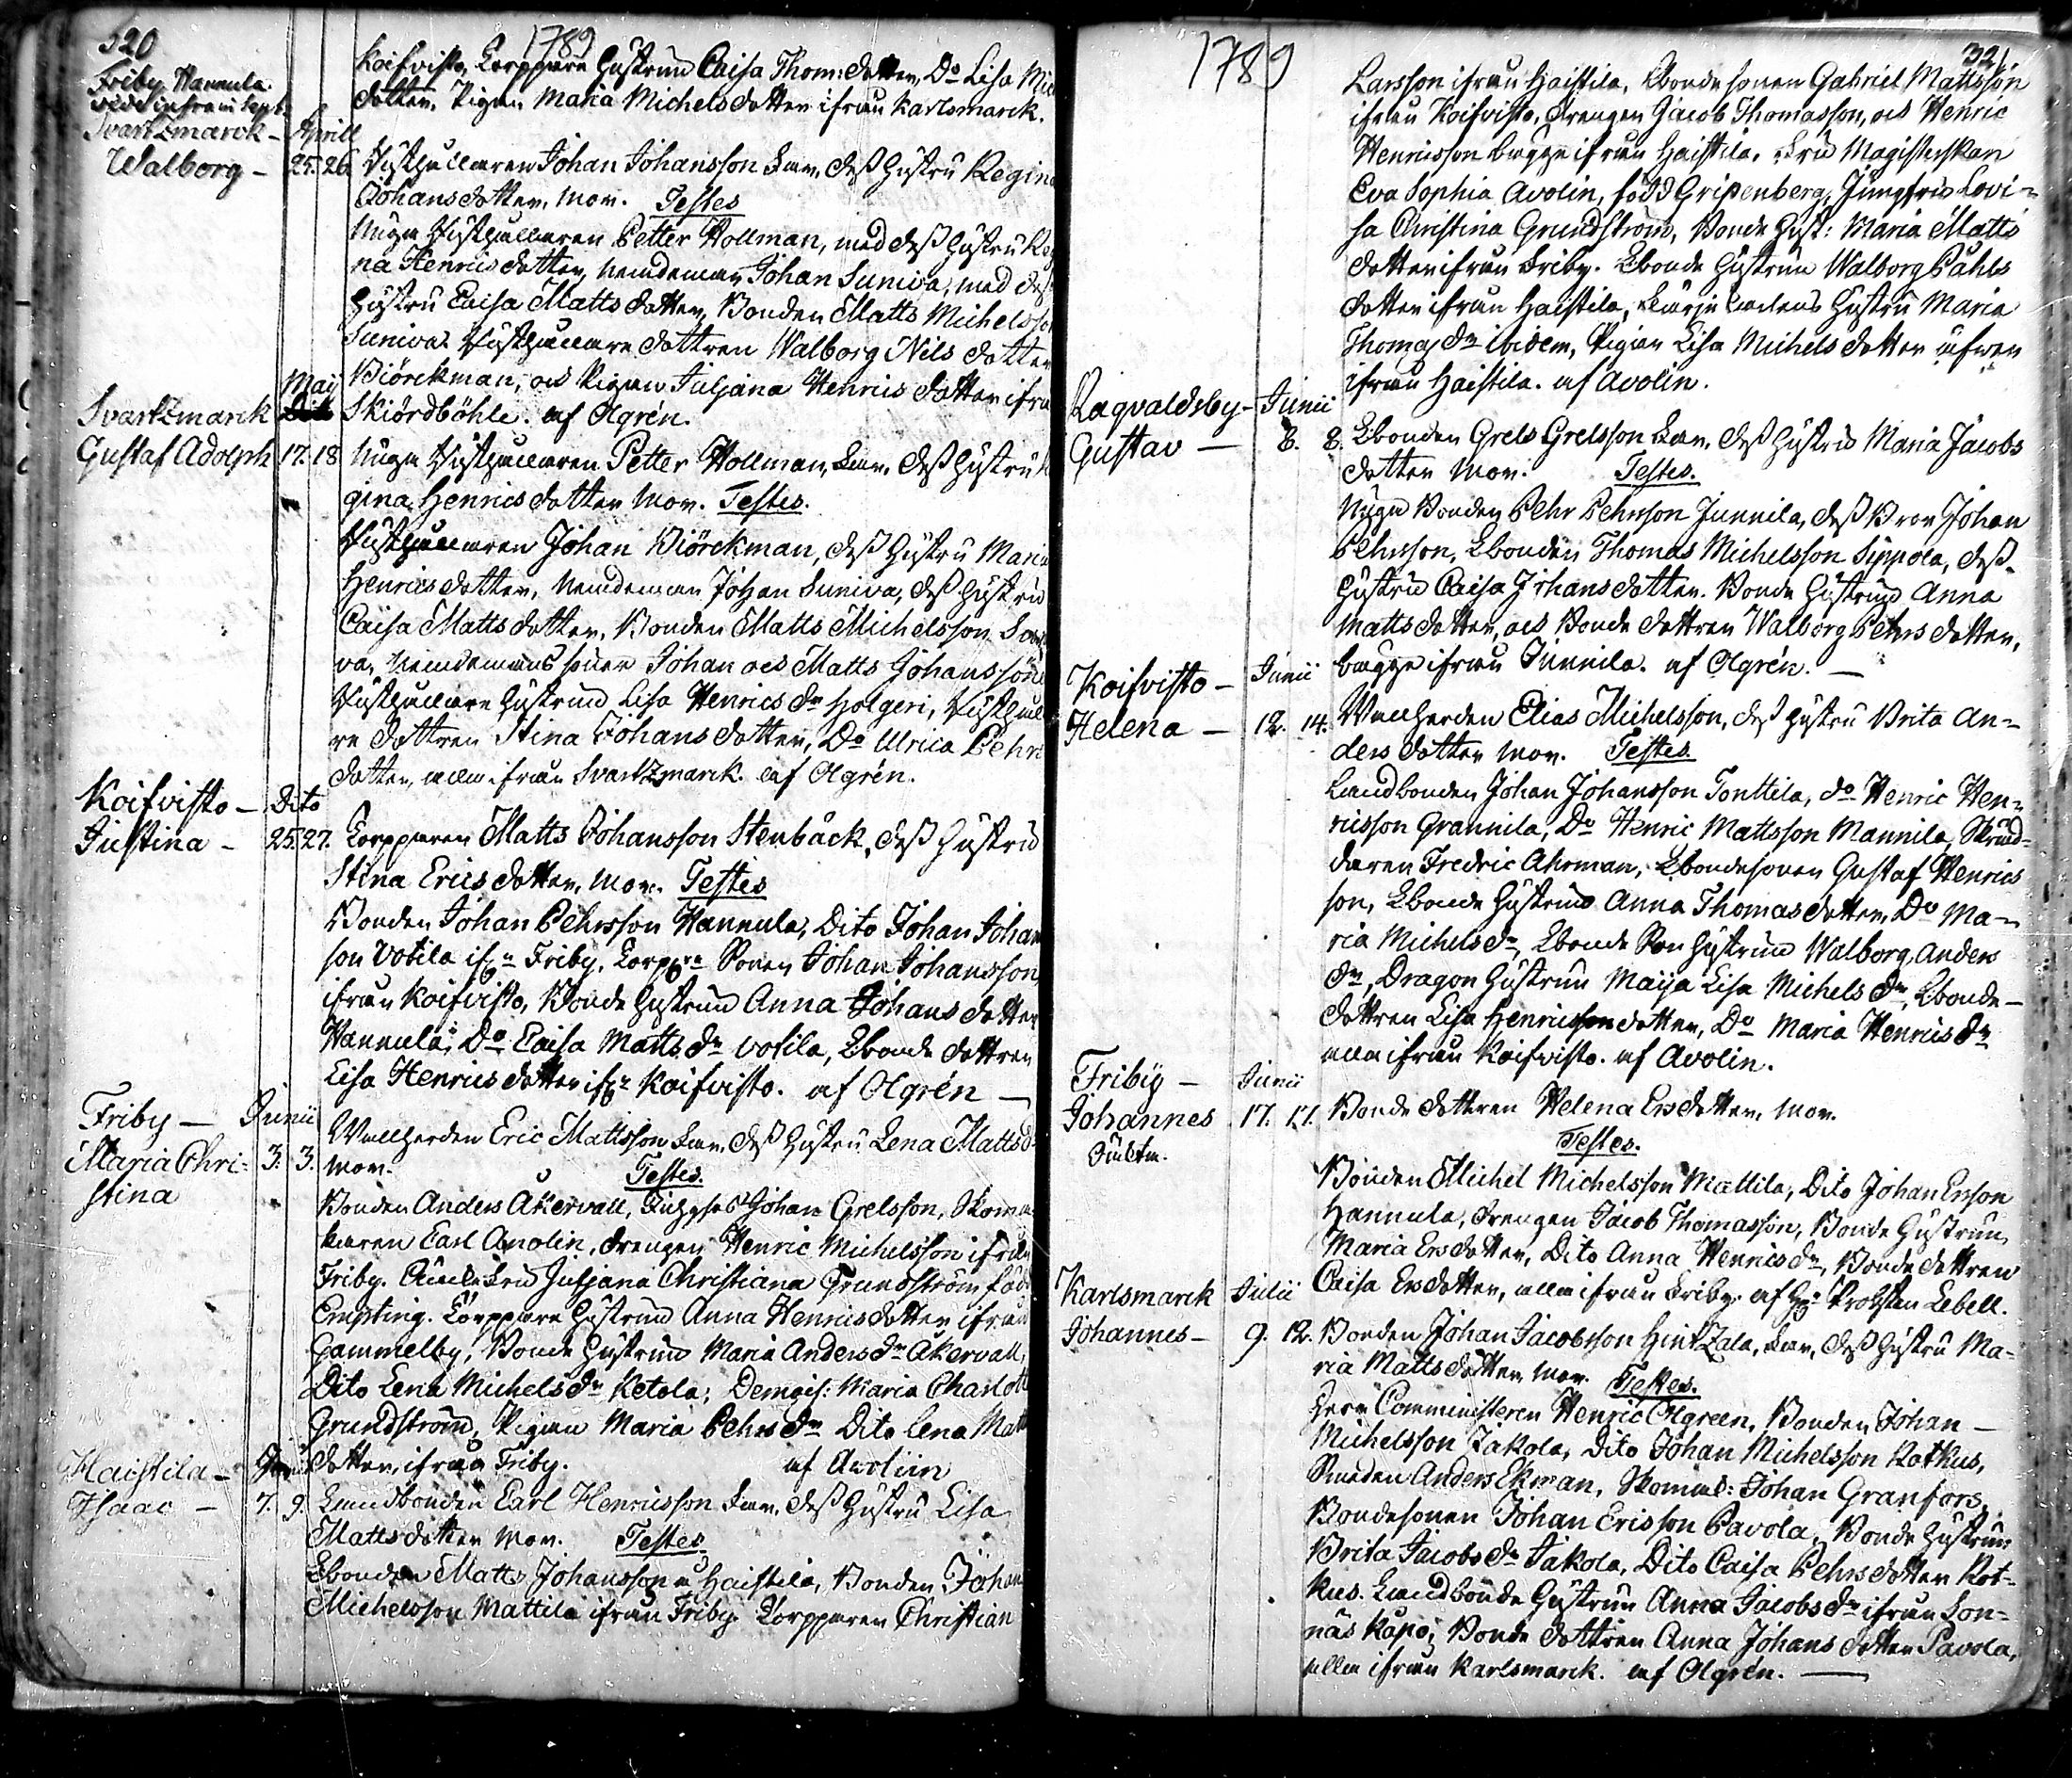 320
1789
Friby Hannula
vide infra in Sept.
Koifvisto, Torppare Hustrun Caisa Thom: dotter, Do Lisa Mic
dotter, Pigan Maria Michelsdotter ifrån Karlsmarck.
Svartzmarck - Aprill
Walborg - 25. 26. Nybyggaren Johan Johansson Far, dess Hustru Regina
Johansdotter, Mor. Testes
Unga Nybyggaren Petter Hollman, med dess hustru Reg
na Henricsdotter, Nämdeman Johan Suniva, med dess
Hustru Caisa Mattsdotter, Bonden Matts Michelsson
Suniva, Nybyggare dottren Walborg Nils dotter
Biörckman, och Pigan Juljana Henrics dotter ifrå
Skiördböhle. af Olgrén.
Svartzmarck Maij
Gustaf Adolph 17. 18 Unga Nybyggaren Petter Hollman, Far, dess Hustru
gina Henricsdotter Mor. Testes.
Nybyggaren Johan Biörckman, dess Hustru Maria
Henricsdotter, Nämdeman Johan Suniva, dess Hustru
Caisa Mattsdotter, Bonden Matts Michelsson
va, Nämdemans söner Johan och Matts Johanssöner
Nybyggare Hustrun Lisa Henrics dr Holgeri,
re dottren Stina Johansdotter, Do Ulrica Pehrs
dotter, alla ifrån Svartzmarck. af Olgrén.
Koifvisto - Dito
Justina - 25. 27. Torpparen Matts Johansson Stenbäck, dess Hustru
Stina Ericsdotter, Mor. Testes
Bonden Johan Pehrsson Hannula, Dito Johan Johan
son Votila ifrn Friby, Torpprn Sonen Johan Johansson
ifrån Koifvisto, Bonde Hustrun Anna Johansdotter
Hannula, Do Caisa Matts dr Votila, Lbonde dottren
Lisa Henricsdotter ifrn Koifvisto. af Olgrén —
Friby - Junii
Maria Chri= 3. 3. Vallherden Eric Mattsson Far, dess Hustru Lena Matts d
stina Mor. Testes.
Bonden Anders Åkervall, Johan Grelsson, Skoma
karen Carl Avolin, drengen Henric Michelsson ifrån
Friby. Juljana Christiana Grundström född
Empting. Torppare Hustrun Anna Henricsdotter ifrån
Gammelby, Bonde Hustrun Maria Anders dr Åkervall,
Dito Lena Michels dr Ketola; Demois: Maria Charlott
Grundström, Pigan Maria Pehrs dr Dito Lena Matt
dotter, ifrån Friby. af Avolin
Haistila - Junii
Isaac - 7. 9. Landbonden Carl Henricsson Far, dess Hustru Lisa
Mattsdotter Mor. Testes
Lbonden Matts Johansson Haistila, Bonden Johan
Michelsson Mattila ifrån Friby Torpparen Christian
1789
321
Larsson ifrån Haistila, Lbonde sonen Gabriel Mattsson
ifrån Koifvisto, drengen Jacob Thomasson, och Henric
Henricsson begge ifrån Haistila. Fru Magisterskan
Eva Sophia Avolin, född Gripenberg, Jungfru Lovi=
sa Christina Grundström, Bonde Hust: Maria Matts
dotter ifrån Friby. Lbonde Hustrun Walborg Påhls
dotter ifrån Haistila, Hustru Maria
Thomas dr ibidem, Pigan Lisa Michels dotter äfven
ifrån Haistila. af Avolin.
Ragvaldsby - Junii
Gustav — 8. 8. Lbonden Grels Grelsson Far, dess Hustru Maria Jacobs
dotter Mor. Testes.
Unga Bonden Pehr Pehrsson Junnila, dess Bror Johan
Pehrsson, Lbonden Thomas Michelsson Sippola, dess
Hustru Caisa Johansdotter. Bonde Hustrun Anna
Mattsdotter, och Bonde dottren Walborg Pehrs dotter,
begge ifrån Junnila. af Olgrén. —
Koifvisto - Junii
Helena — 12. 14. Vallherden Elias Michelsson, dess Hustru Brita An=
dersdotter Mor. Testes.
Landbonden Johan Johansson Tonttila, do Henric Hen=
ricsson Grannila, Do Henric Mattsson Mannila, Skräd=
daren Fredric Ahrman, Lbondesonen Gustaf Henrics
son, Lbonde Hustrun Anna Thomasdotter, Do Ma=
ria Michels dr, Lbonde Son Hustrun Walborg Anders
dr, Dragon Hustrun Maija Lisa Michels dr, Lbonde—
dottren Lisa Henricsson dotter, Do Maria Henrics dr
alla ifrån Koifvisto. af Avolin.
Fribÿ - Junii
Johannes 17. 17. Bonde dotteren Helena Ersdotter, Mor.
Testes.
Bonden Michel Michelsson Mattila, Dito Johan Ersson
Hannula, drengen Jacob Thomasson, Bonde Hustrun
Maria Ersdotter, Dito Anna Henrics dr, Bonde dottren
Caisa Ersdotter, alla ifrån Friby. af Hr Probsten Lebell.
Karlsmarck Julii
Johannes - 9. 12. Bonden Johan Jacobsson Hintzala, Far, dess Hustru Ma=
ria Mattsdotter Mor. Testes.
Herr Comministern Henric Olgreen, Bonden Johan —
Michelsson Jakola, Dito Johan Michelsson Kotkus,
Smeden Anders Ekman, Skomak: Johan Granfors,
Bondesonen Johan Ericsson Pavola, Bonde Hustrun
Brita Jacobs dr Jakola, Dito Caisa Pehrsdotter Kot=
kus. Landbonde Hustrun Anna Jacobs dr ifrån Son=
näs Kapo; Bonde dottren Anna Johans dotter Pavola,
alla ifrån Karlsmarck. af Olgrén. —